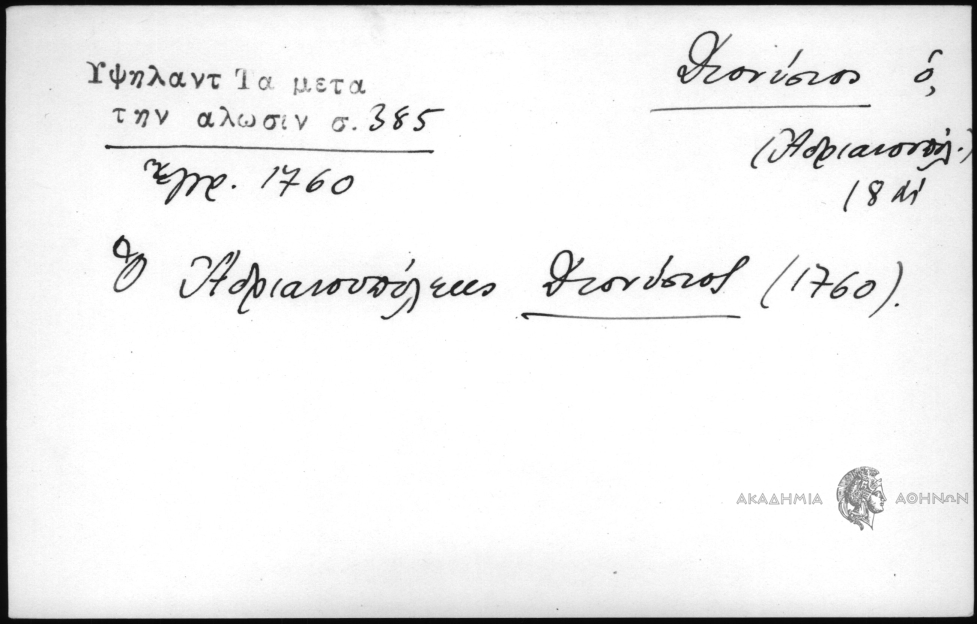 Υψηλαντ Τα μετα
την αλωσιν σ. 385
Έγγρ. 1760
Διονύσιος ὁ,
(Ἀδριανουπόλ.)
18 αἰ
Ὁ Ἀδριανουπόλεως Διονύσιος (1760).
ΑΚΑΔΗΜΙΑ ΑΘΗΝΩΝ